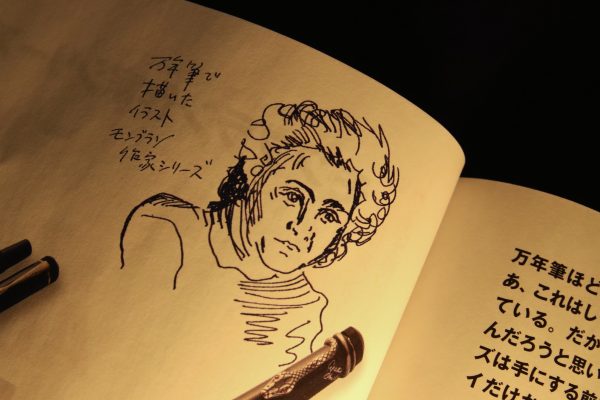 万年筆で
描いた
イラスト
モンブラン
作家シリーズ
万年筆ほど
あ、これはし
ている。だが
んだろうと思い
ズは手にする前
イだけ